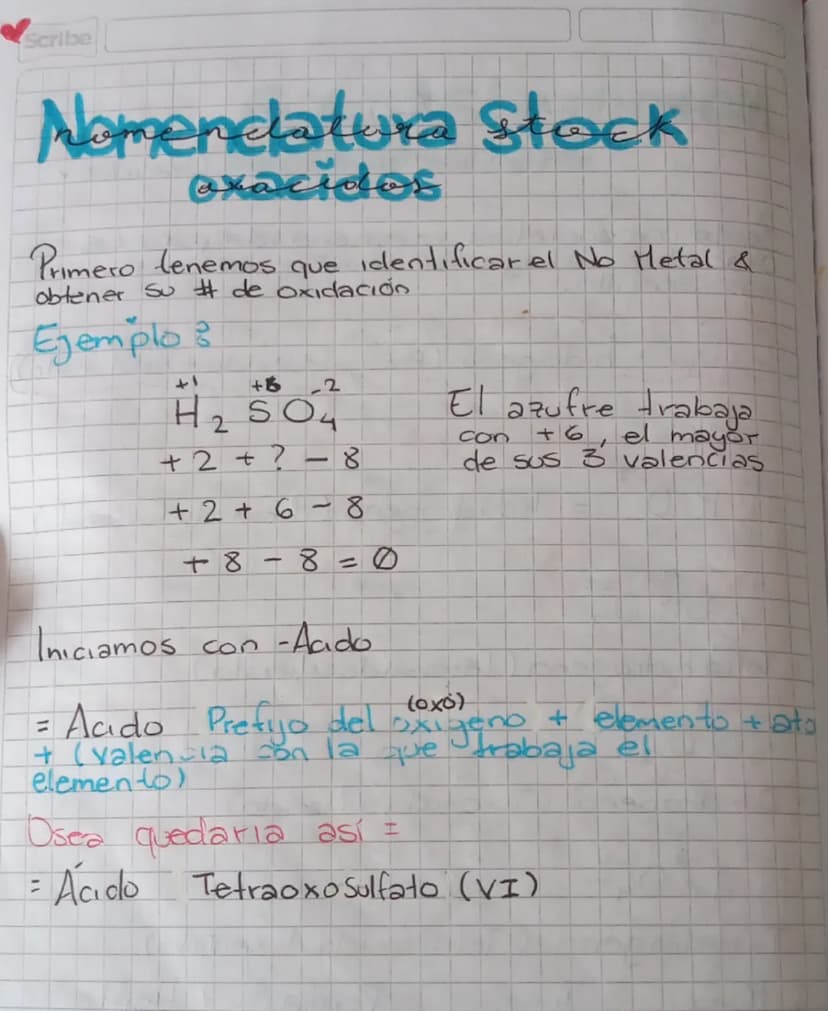 Scribe
Nomenclatura Stock
oxacidos
Primero tenemos que identificar el No Metal &
obtener su # de oxidación
Ejemplo:
+1 +6 -2
H2 SO4
+2 + ? - 8
+2 + 6 - 8
+8 - 8 = 0
El azufre trabaja
con +6, el mayor
de sus 3 valencias
Iniciamos con -Acido
(oxo)
= Acido Prefijo del oxigeno + elemento + ato
+ (valencia con la que trabaja el
elemento)
Osea quedaria así =
= Ácido Tetraoxosulfato (VI)